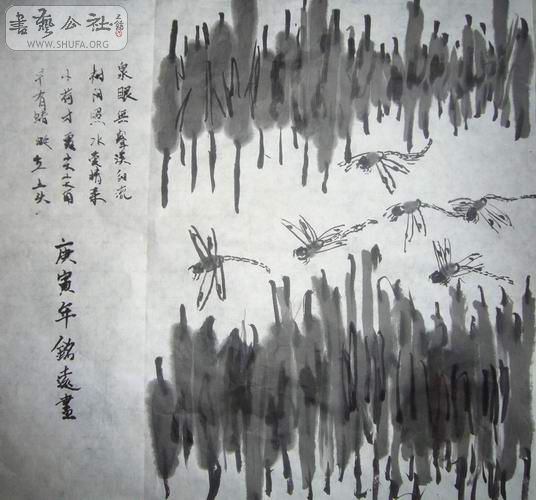 書藝公社
WWW.SHUFA.ORG
泉眼無聲惜細流
樹陰照水愛晴柔
小荷才露尖尖角
早有蜻蜓立上头
庚寅年銘遠畫